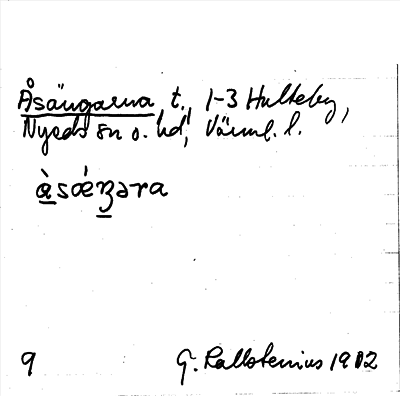 Åsängarna, t., 1-3 Hulteby,
Nyeds sn o. hd, Värml. l.
à̱sǽŋ̱əra
9 G. Kallstenius 1902